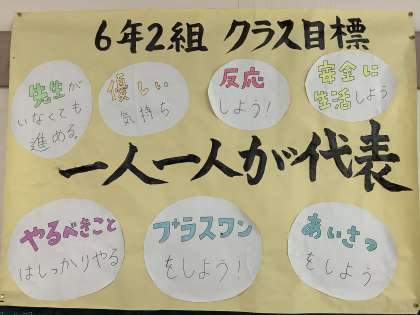 6年2組 クラス目標
先生が
いなくても
進める
優しい
気持ち
反応
しよう!
安全に
生活しよう
一人一人が代表
やるべきこと
はしっかりやる
プラスワン
をしよう!
あいさつ
をしよう